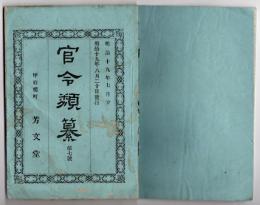 明治十九年七月分
明治十九年八月二十日發行
官令類纂 第七號
甲府櫻町 芳文堂